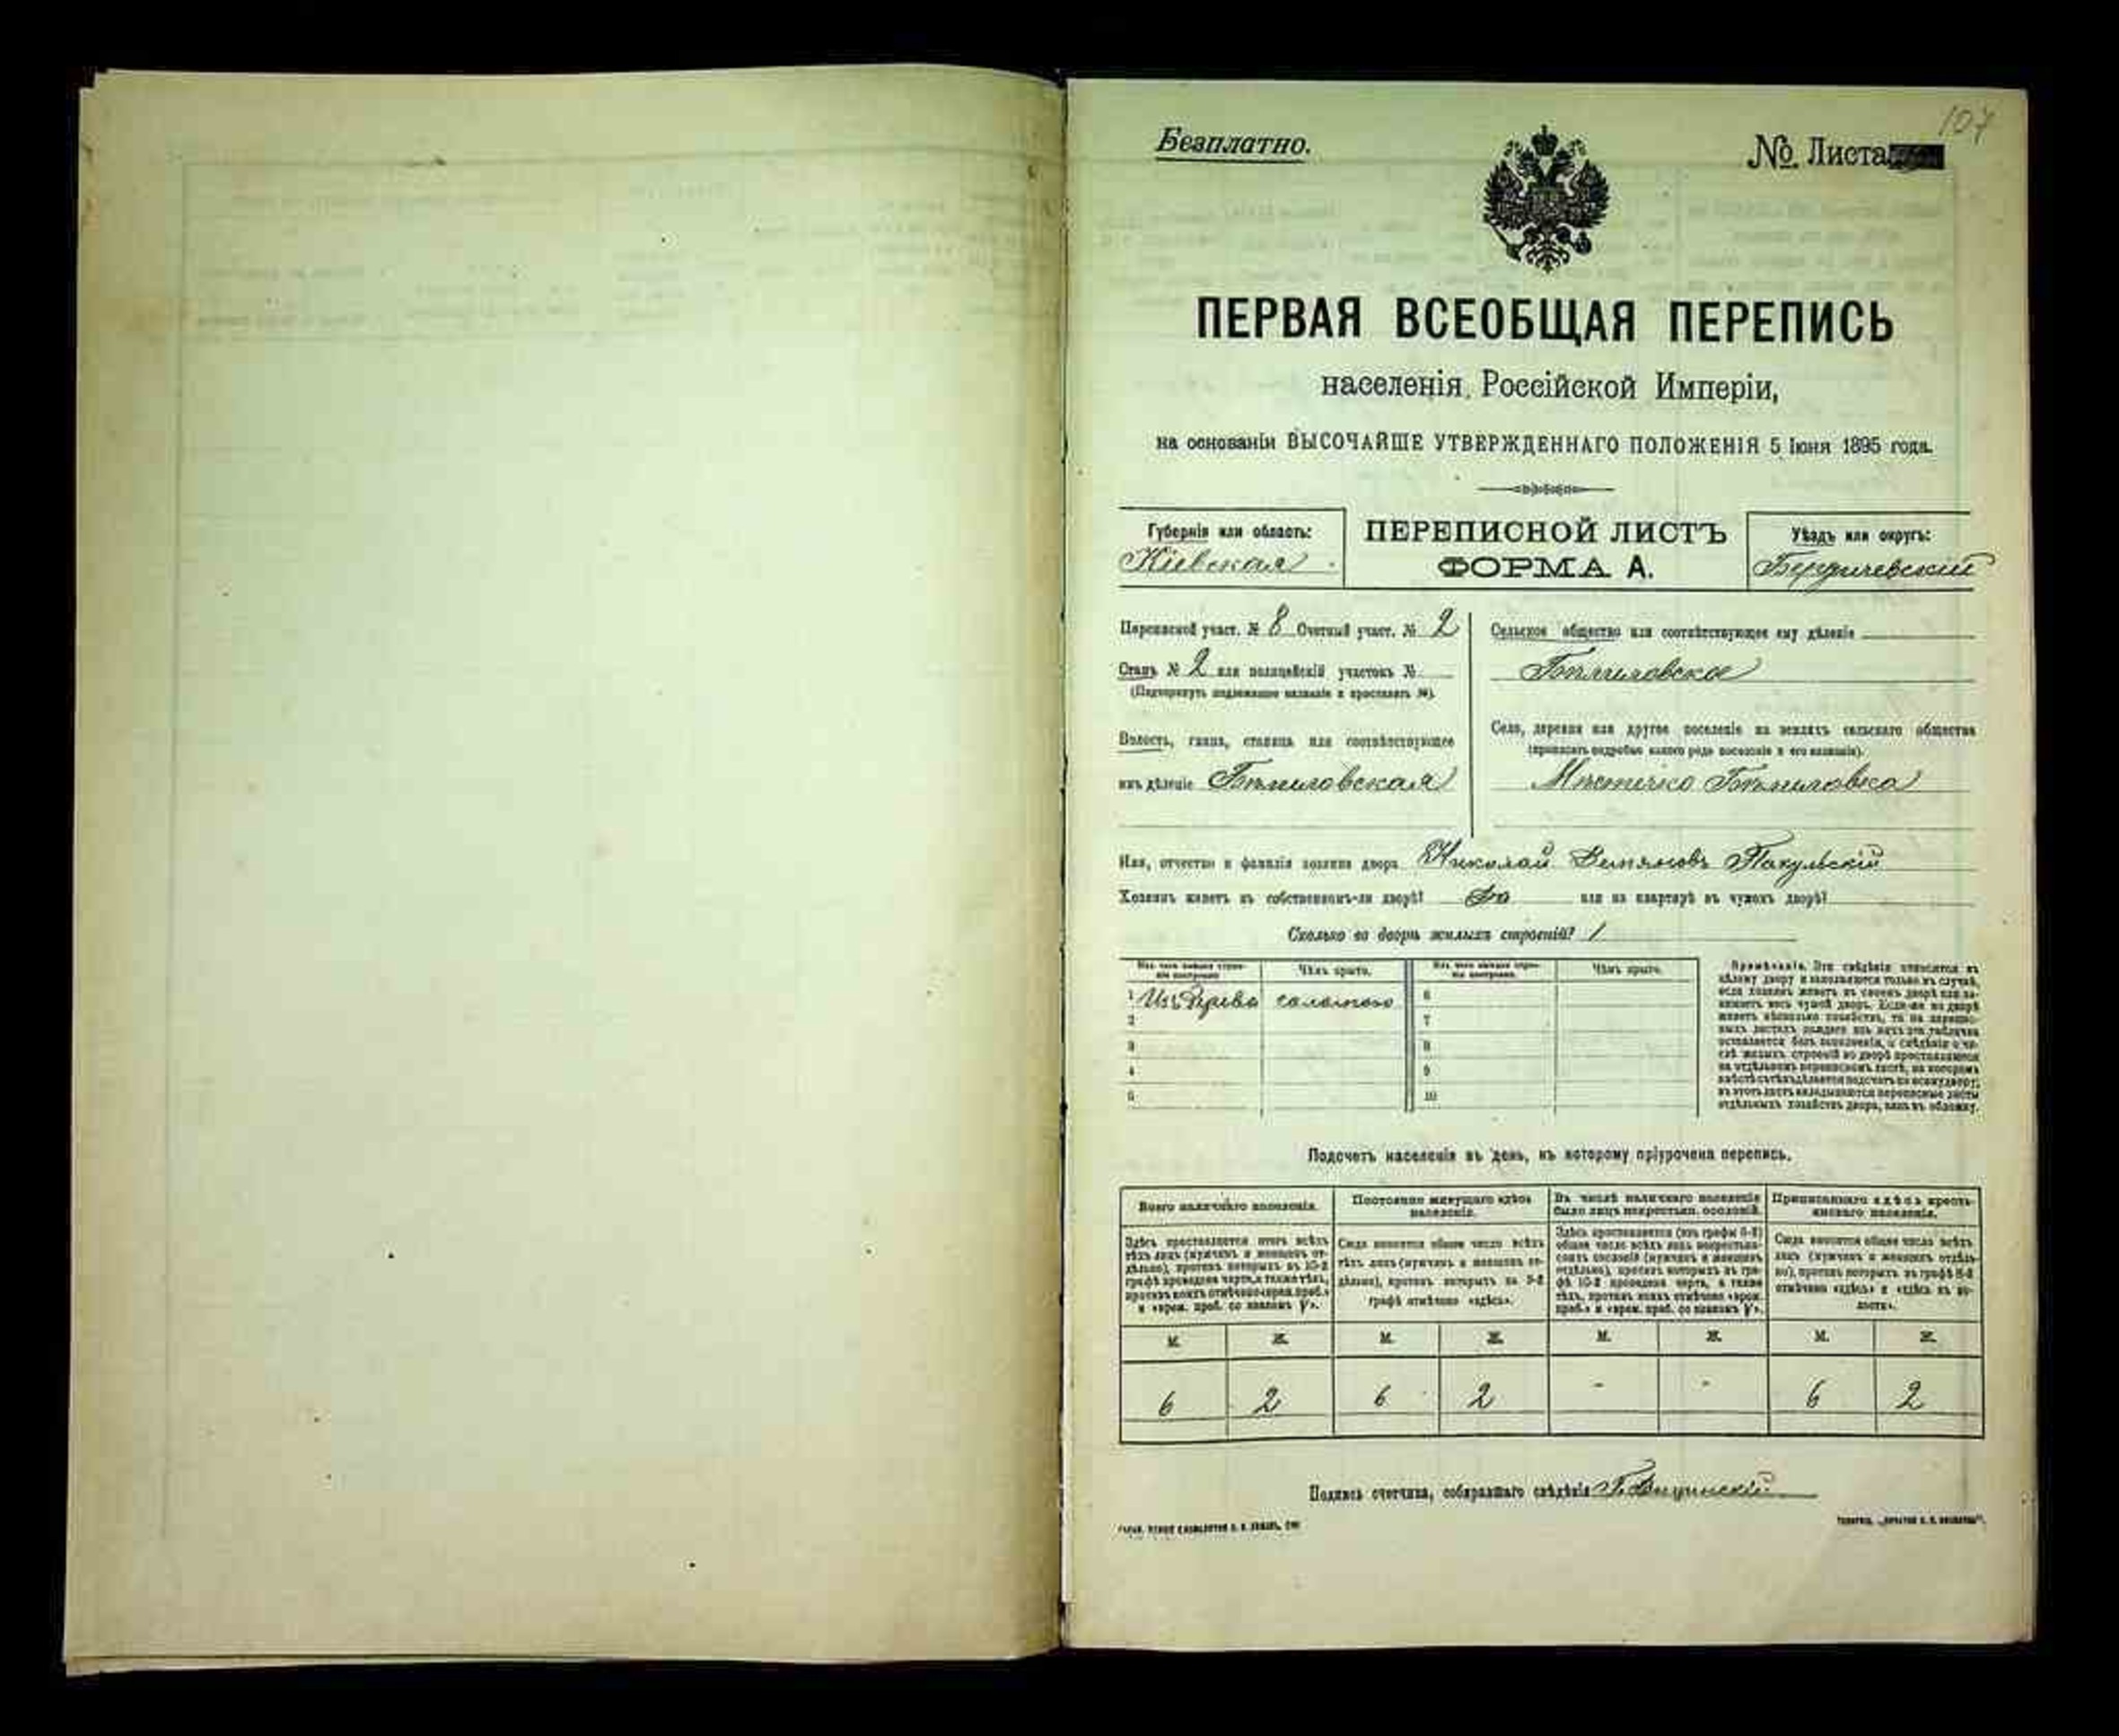 107
Безплатно.
№ Листа
ПЕРВАЯ ВСЕОБЩАЯ ПЕРЕПИСЬ
населенія Россійской Имперіи,
на основаніи ВЫСОЧАЙШЕ УТВЕРЖДЕННАГО ПОЛОЖЕНІЯ 5 Іюня 1895 года.
Губернія или область:
Кіевская
ПЕРЕПИСНОЙ ЛИСТЪ
ФОРМА А.
Уѣздъ или округъ:
Бердичевскій
Переписной участ. № 8 Счетный участ. № 2
Станъ № 2 или полицейскій участокъ №
(Подчеркнуть надлежащее названіе и проставить №).
Волость, гмина, станица или соотвѣтствующее
имъ дѣленіе Бѣлиловская
Сельское общество или соотвѣтствующее ему дѣленіе
Бѣлиловское
Село, деревня или другое поселеніе на земляхъ сельскаго общества
(прописать подробно какого рода поселеніе и его названіе).
Мѣстечко Бѣлиловка
Имя, отчество и фамилія хозяина двора Николай Демяновъ Пакульскій
Хозяинъ живетъ въ собственномъ-ли дворѣ? Да или на квартирѣ въ чужомъ дворѣ?
Сколько во дворѣ жилыхъ строеній? 1
Изъ чего жилыя строенія построены Чѣмъ крыто. Изъ чего жилыя строенія построены Чѣмъ крыто.
1 Изъ дерева соломою 6
2 7
3 8
4 9
5 10
Примѣчаніе. Эти свѣдѣнія относятся къ
цѣлому двору и заполняются только въ случаѣ,
если хозяинъ живетъ въ своемъ дворѣ или за-
нимаетъ весь чужой дворъ. Если-же во дворѣ
живетъ нѣсколько хозяйствъ, то на перепис-
ныхъ листахъ каждаго изъ нихъ эта табличка
оставляется безъ заполненія, а свѣдѣнія о чи-
слѣ жилыхъ строеній во дворѣ проставляются
на отдѣльномъ переписномъ листѣ, на которомъ
вмѣстѣ съ тѣмъ дѣлается подсчетъ по всему двору;
въ этотъ листъ вкладываются переписные листы
отдѣльныхъ хозяйствъ двора, какъ въ обложку.
Подсчетъ населенія въ день, къ которому пріурочена перепись.
Всего наличнаго населенія.
Здѣсь проставляется итогъ всѣхъ
тѣхъ лицъ (мужчинъ и женщинъ от-
дѣльно), противъ которыхъ въ 10-й
графѣ проведена черта, а также тѣхъ,
противъ коихъ отмѣчено «врем. преб.»
и «врем. преб. со знакомъ V».
Постоянно живущаго здѣсь
населенія.
Сюда вносится общее число всѣхъ
тѣхъ лицъ (мужчинъ и женщинъ от-
дѣльно), противъ которыхъ въ 9-й
графѣ отмѣчено «здѣсь».
Въ числѣ наличнаго населенія
было лицъ некрестьян. сословій.
Здѣсь проставляется (изъ графы 6-й)
общее число всѣхъ лицъ некрестьян-
скихъ сословій (мужчинъ и женщинъ
отдѣльно), противъ которыхъ въ гра-
фѣ 10-й проведена черта, а также
тѣхъ, противъ коихъ отмѣчено «врем.
преб.» и «врем. преб. со знакомъ V».
Приписаннаго здѣсь кресть-
янскаго населенія.
Сюда вносится общее число всѣхъ
лицъ (мужчинъ и женщинъ отдѣль-
но), противъ которыхъ въ графѣ 8-й
отмѣчено «здѣсь» и «здѣсь въ во-
лости».
М. Ж. М. Ж. М. Ж. М. Ж.
6 2 6 2 - - 6 2
Подпись счетчика, собиравшаго свѣдѣнія